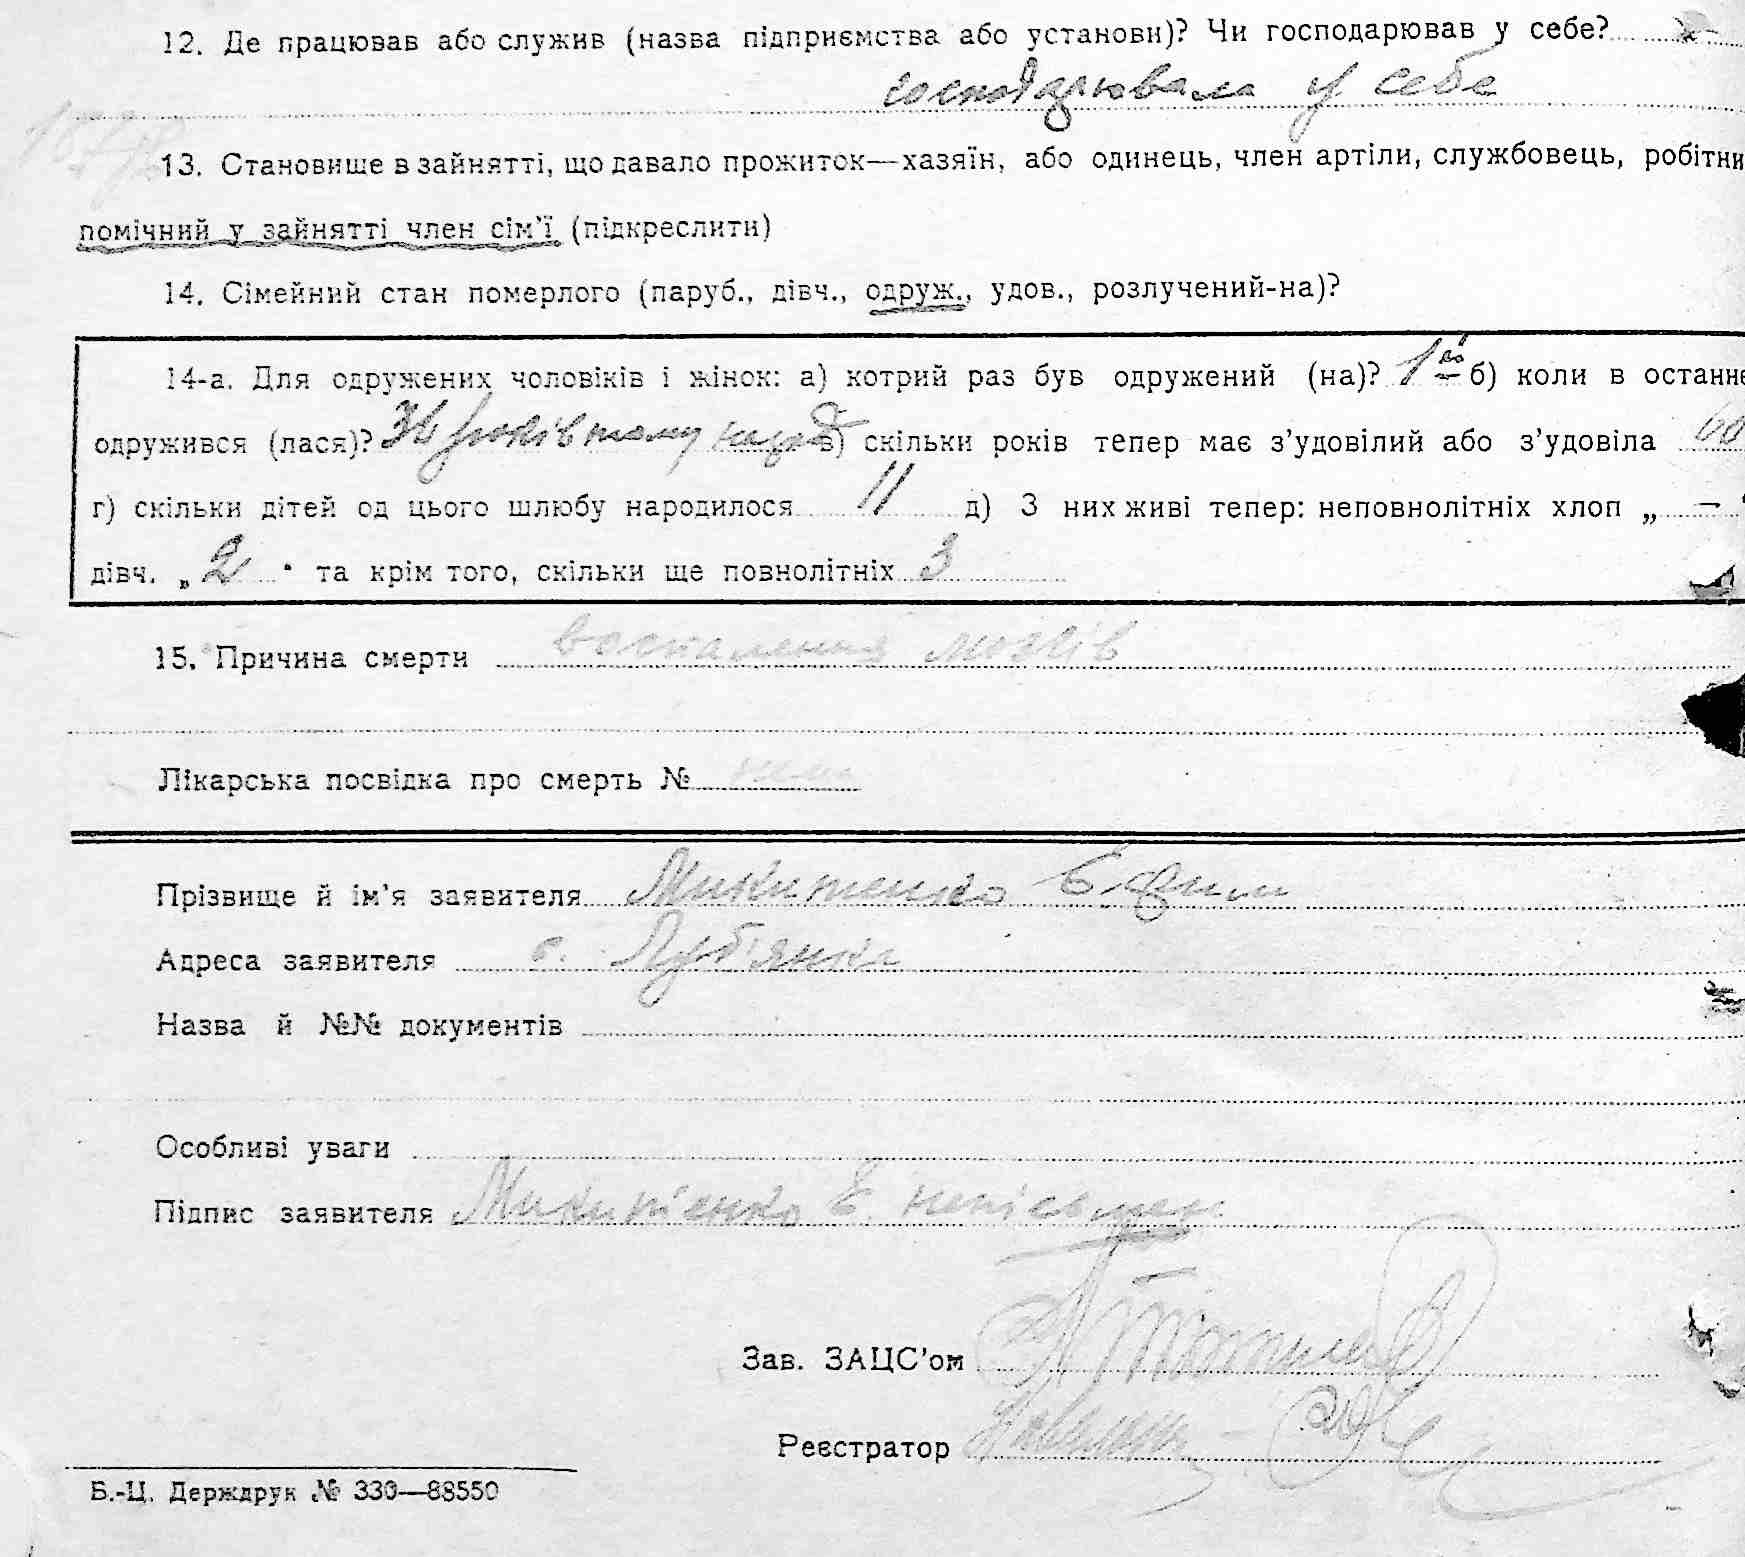 12. Де працював або служив (назва підприємства або установи)? Чи господарював у себе?
господарювала у себе
13. Становище в зайнятті, що давало прожиток—хазяїн, або одинець, член артіли, службовець, робітни
помічний у зайнятті член сім'ї (підкреслити)
14. Сімейний стан померлого (паруб., дівч., одруж., удов., розлучений-на)?
14-а. Для одружених чоловіків і жінок: а) котрий раз був одружений (на)? 1й б) коли в останнє
одружився (лася)? років тому назад в) скільки років тепер має з'удовілий або з'удовіла 60
г) скільки дітей од цього шлюбу народилося 11 д) З них живі тепер: неповнолітніх хлоп „ —
дівч. „ 2 " та крім того, скільки ще повнолітніх 3
15. Причина смерти воспаления мозгів
Лікарська посвідка про смерть № нема
Прізвище й ім'я заявителя Микитенко Єфим
Адреса заявителя с. Луб'янка
Назва й №№ документів
Особливі уваги
Підпис заявителя Микитенко Є. непісьмен
Зав. ЗАЦС'ом
Реєстратор
Б.-Ц. Держдрук № 330—88550